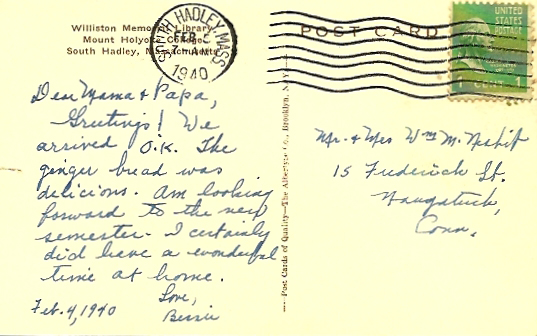 Williston Memorial Library
Mount Holyoke College
South Hadley, Massachusetts
SOUTH HADLEY, MASS.
FEB 5
7 AM
1940
POST CARD
UNITED
STATES
POSTAGE
1 CENT
Dear Mama & Papa,
Greetings! We
arrived O.K. The
ginger bread was
delicious. Am looking
forward to the new
semester. I certainly
did have a wonderful
time at home.
Love,
Bessie
Feb. 4, 1940
Post Cards of Quality—The Albertype Co., Brooklyn, N.Y.
Mr. & Mrs Wm M. Nesbit
15 Frederick St.
Naugatuck,
Conn.